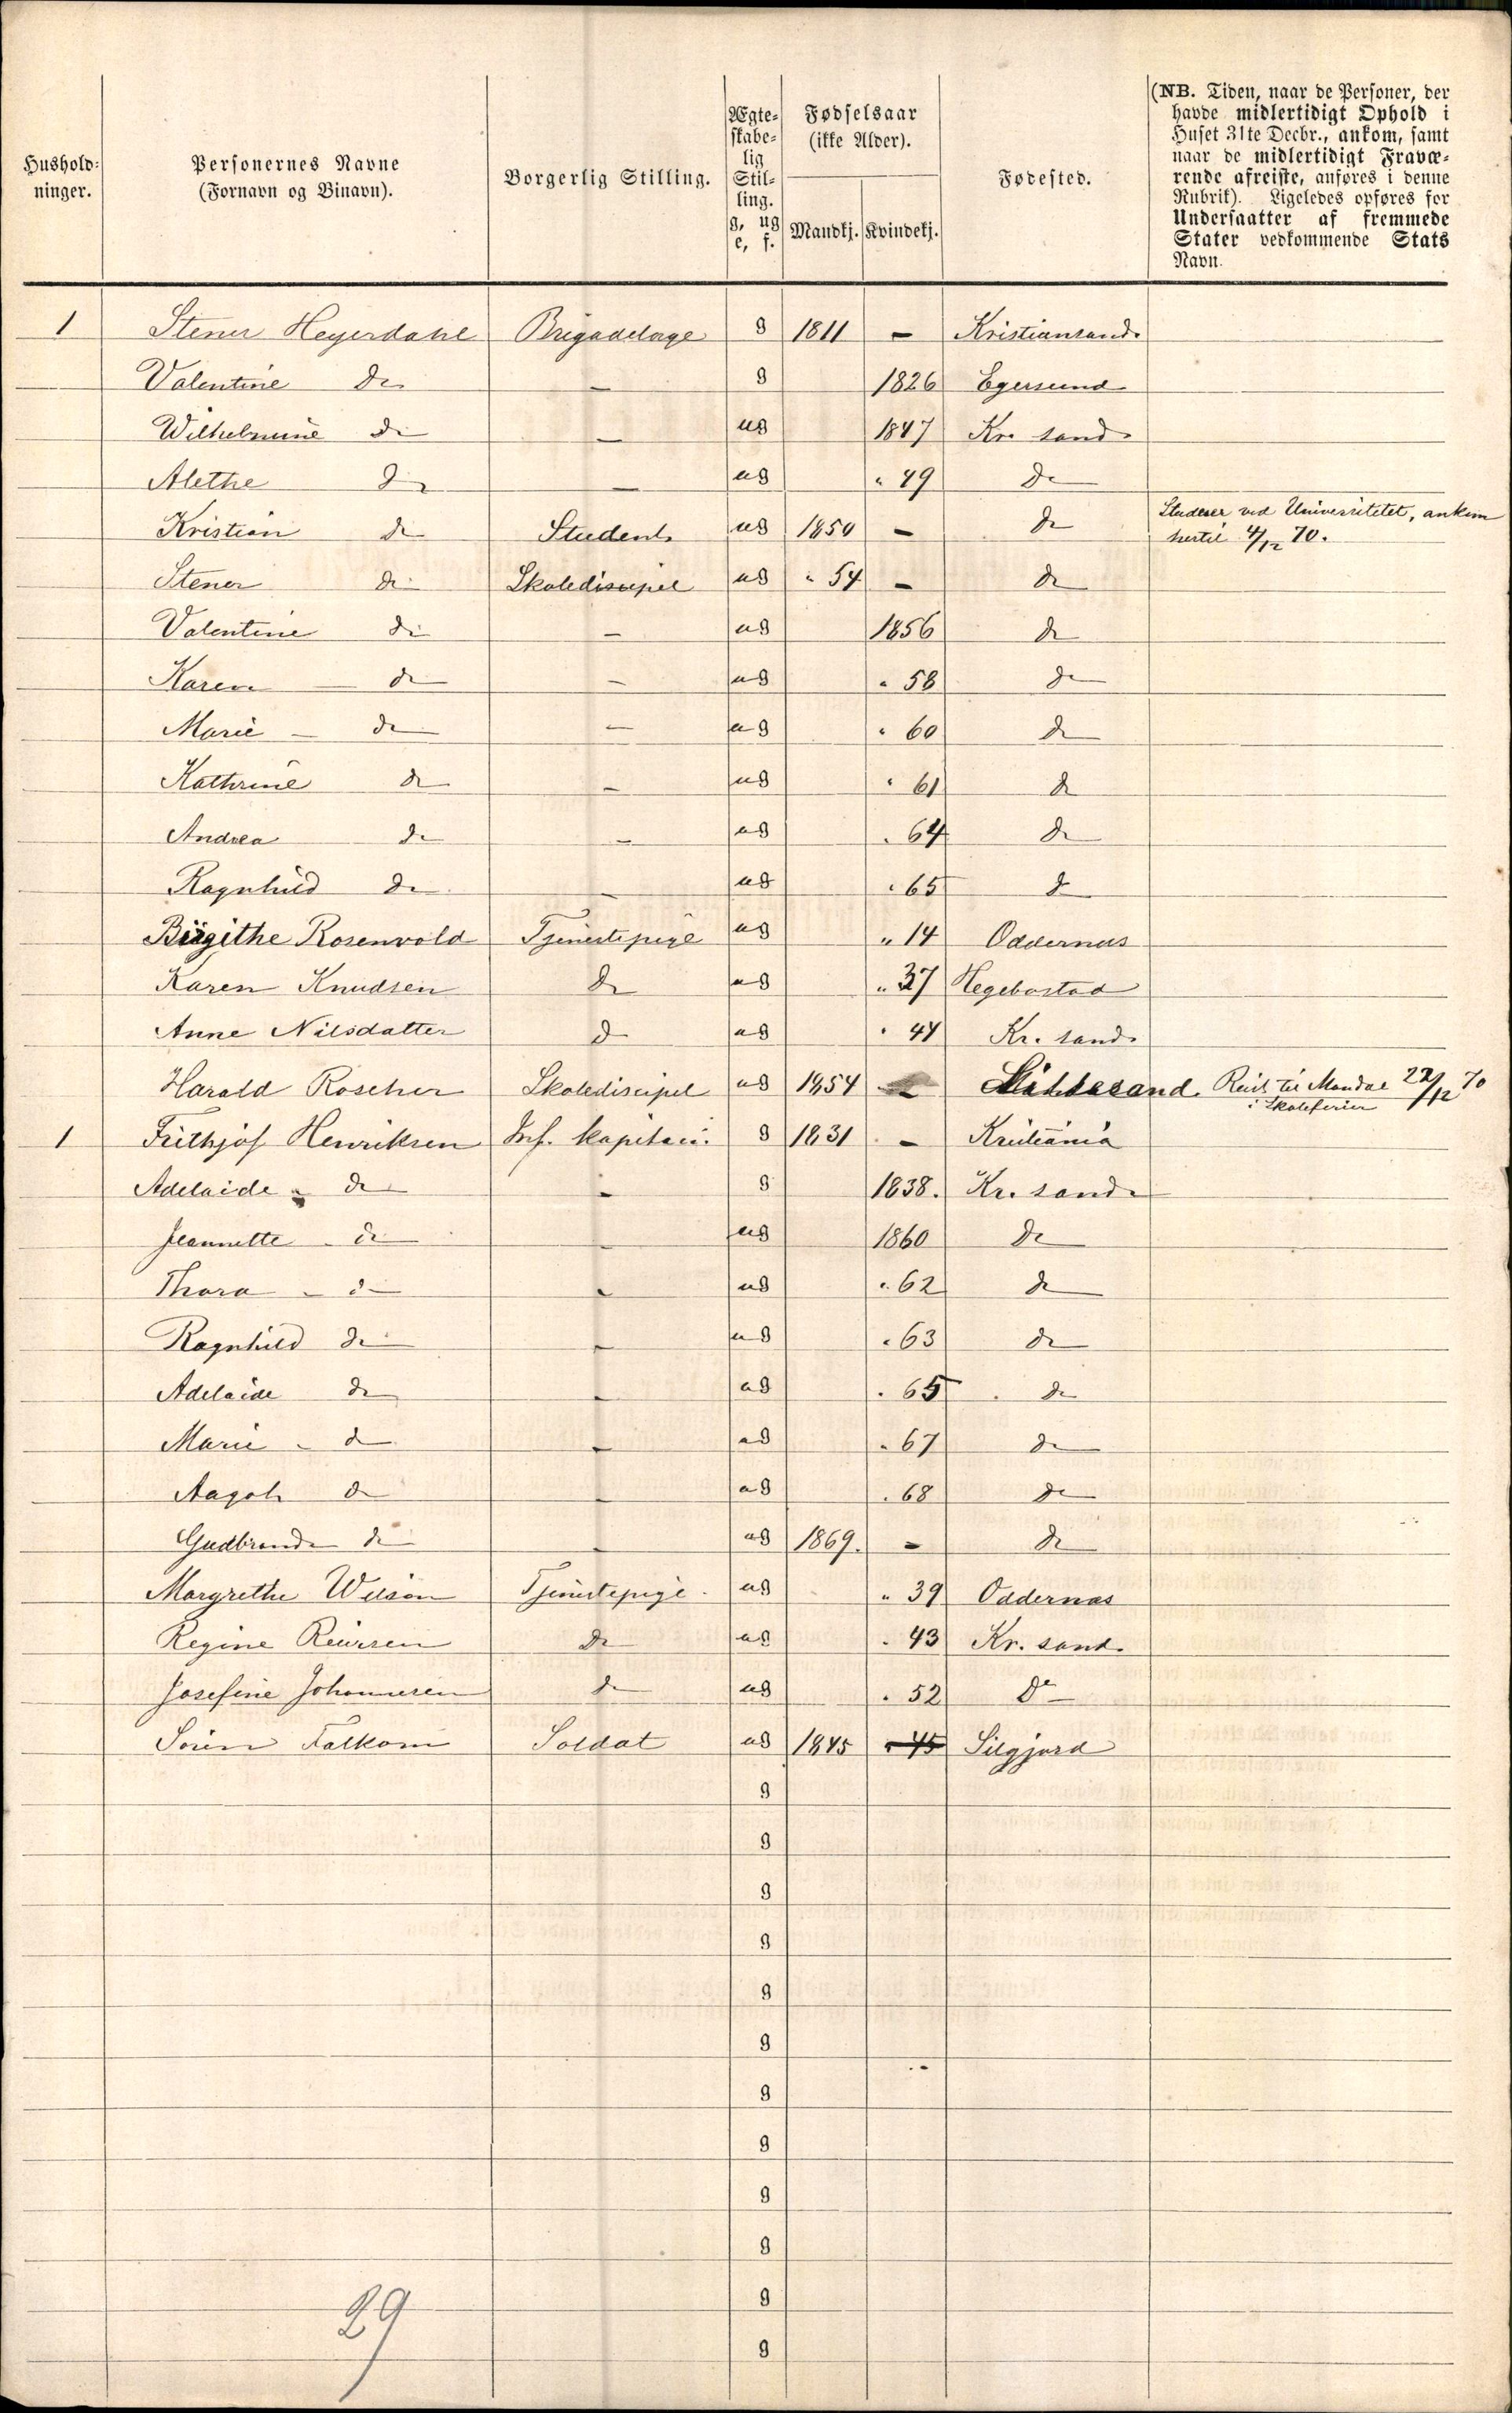 Hushold-
ninger.
Personernes Navne
(Fornavn og Binavn).
Borgerlig Stilling.
Ægte-
skabe-
lig
Stil-
ling.
g, ug
e, f.
Fødselsaar
(ikke Alder).
Mandkj. Kvindekj.
Fødested.
(NB. Tiden, naar de Personer, der
havde midlertidigt Ophold i
Huset 31te Decbr., ankom, samt
naar de midlertidigt Fravæ-
rende afreiste, anføres i denne
Rubrik). Ligeledes opføres for
Undersaatter af fremmede
Stater vedkommende Stats
Navn.
1 Stener Heyerdahl Brigadelæge g 1811 - Kristiansand
Valentine do - g 1826 Egersund
Wilhelmine do - ug 1847 Kr. sand
Alethe do - ug " 49 do
Kristian do Student ug 1850 - do Studerer ved Universitetet, ankom
hertil 4/12 70.
Stener do Skolediscipel ug " 54 - do
Valentine do - ug 1856 do
Karen - do - ug " 58 do
Marie - do - ug " 60 do
Kathrine do - ug " 61 do
Andrea do - ug " 64 do
Ragnhild do - ug " 65 do
Birgithe Rosenvold Tjenestepige ug " 14 Oddernæs
Karen Knudsen do ug " 37 Hegebostad
Anne Nilsdatter do ug " 44 Kr. sand
Harald Roscher Skolediscipel ug 1854 - Lillesand Reist til Mandal 22/12 70
i Skoleferien
1 Frithjof Henriksen Inf. kapitain g 1831 - Kristiania
Adelaide - do - g 1838. Kr. sand
Jeannette - do - ug 1860 do
Thora - do - ug " 62 do
Ragnhild do - ug " 63 do
Adelaide do - ug " 65 do
Marie - do - ug " 67 do
Aagot do - ug " 68 do
Gudbrand do - ug 1869. - do
Margrethe Wilson Tjenestepige ug " 39 Oddernæs
Regine Reiersen do ug " 43 Kr. sand
Josefine Johannesen do ug " 52 do
Søren Soldat ug 1845 " 45 Silgjord
g
g
g
g
g
g
g
g
g
g
g
g
29